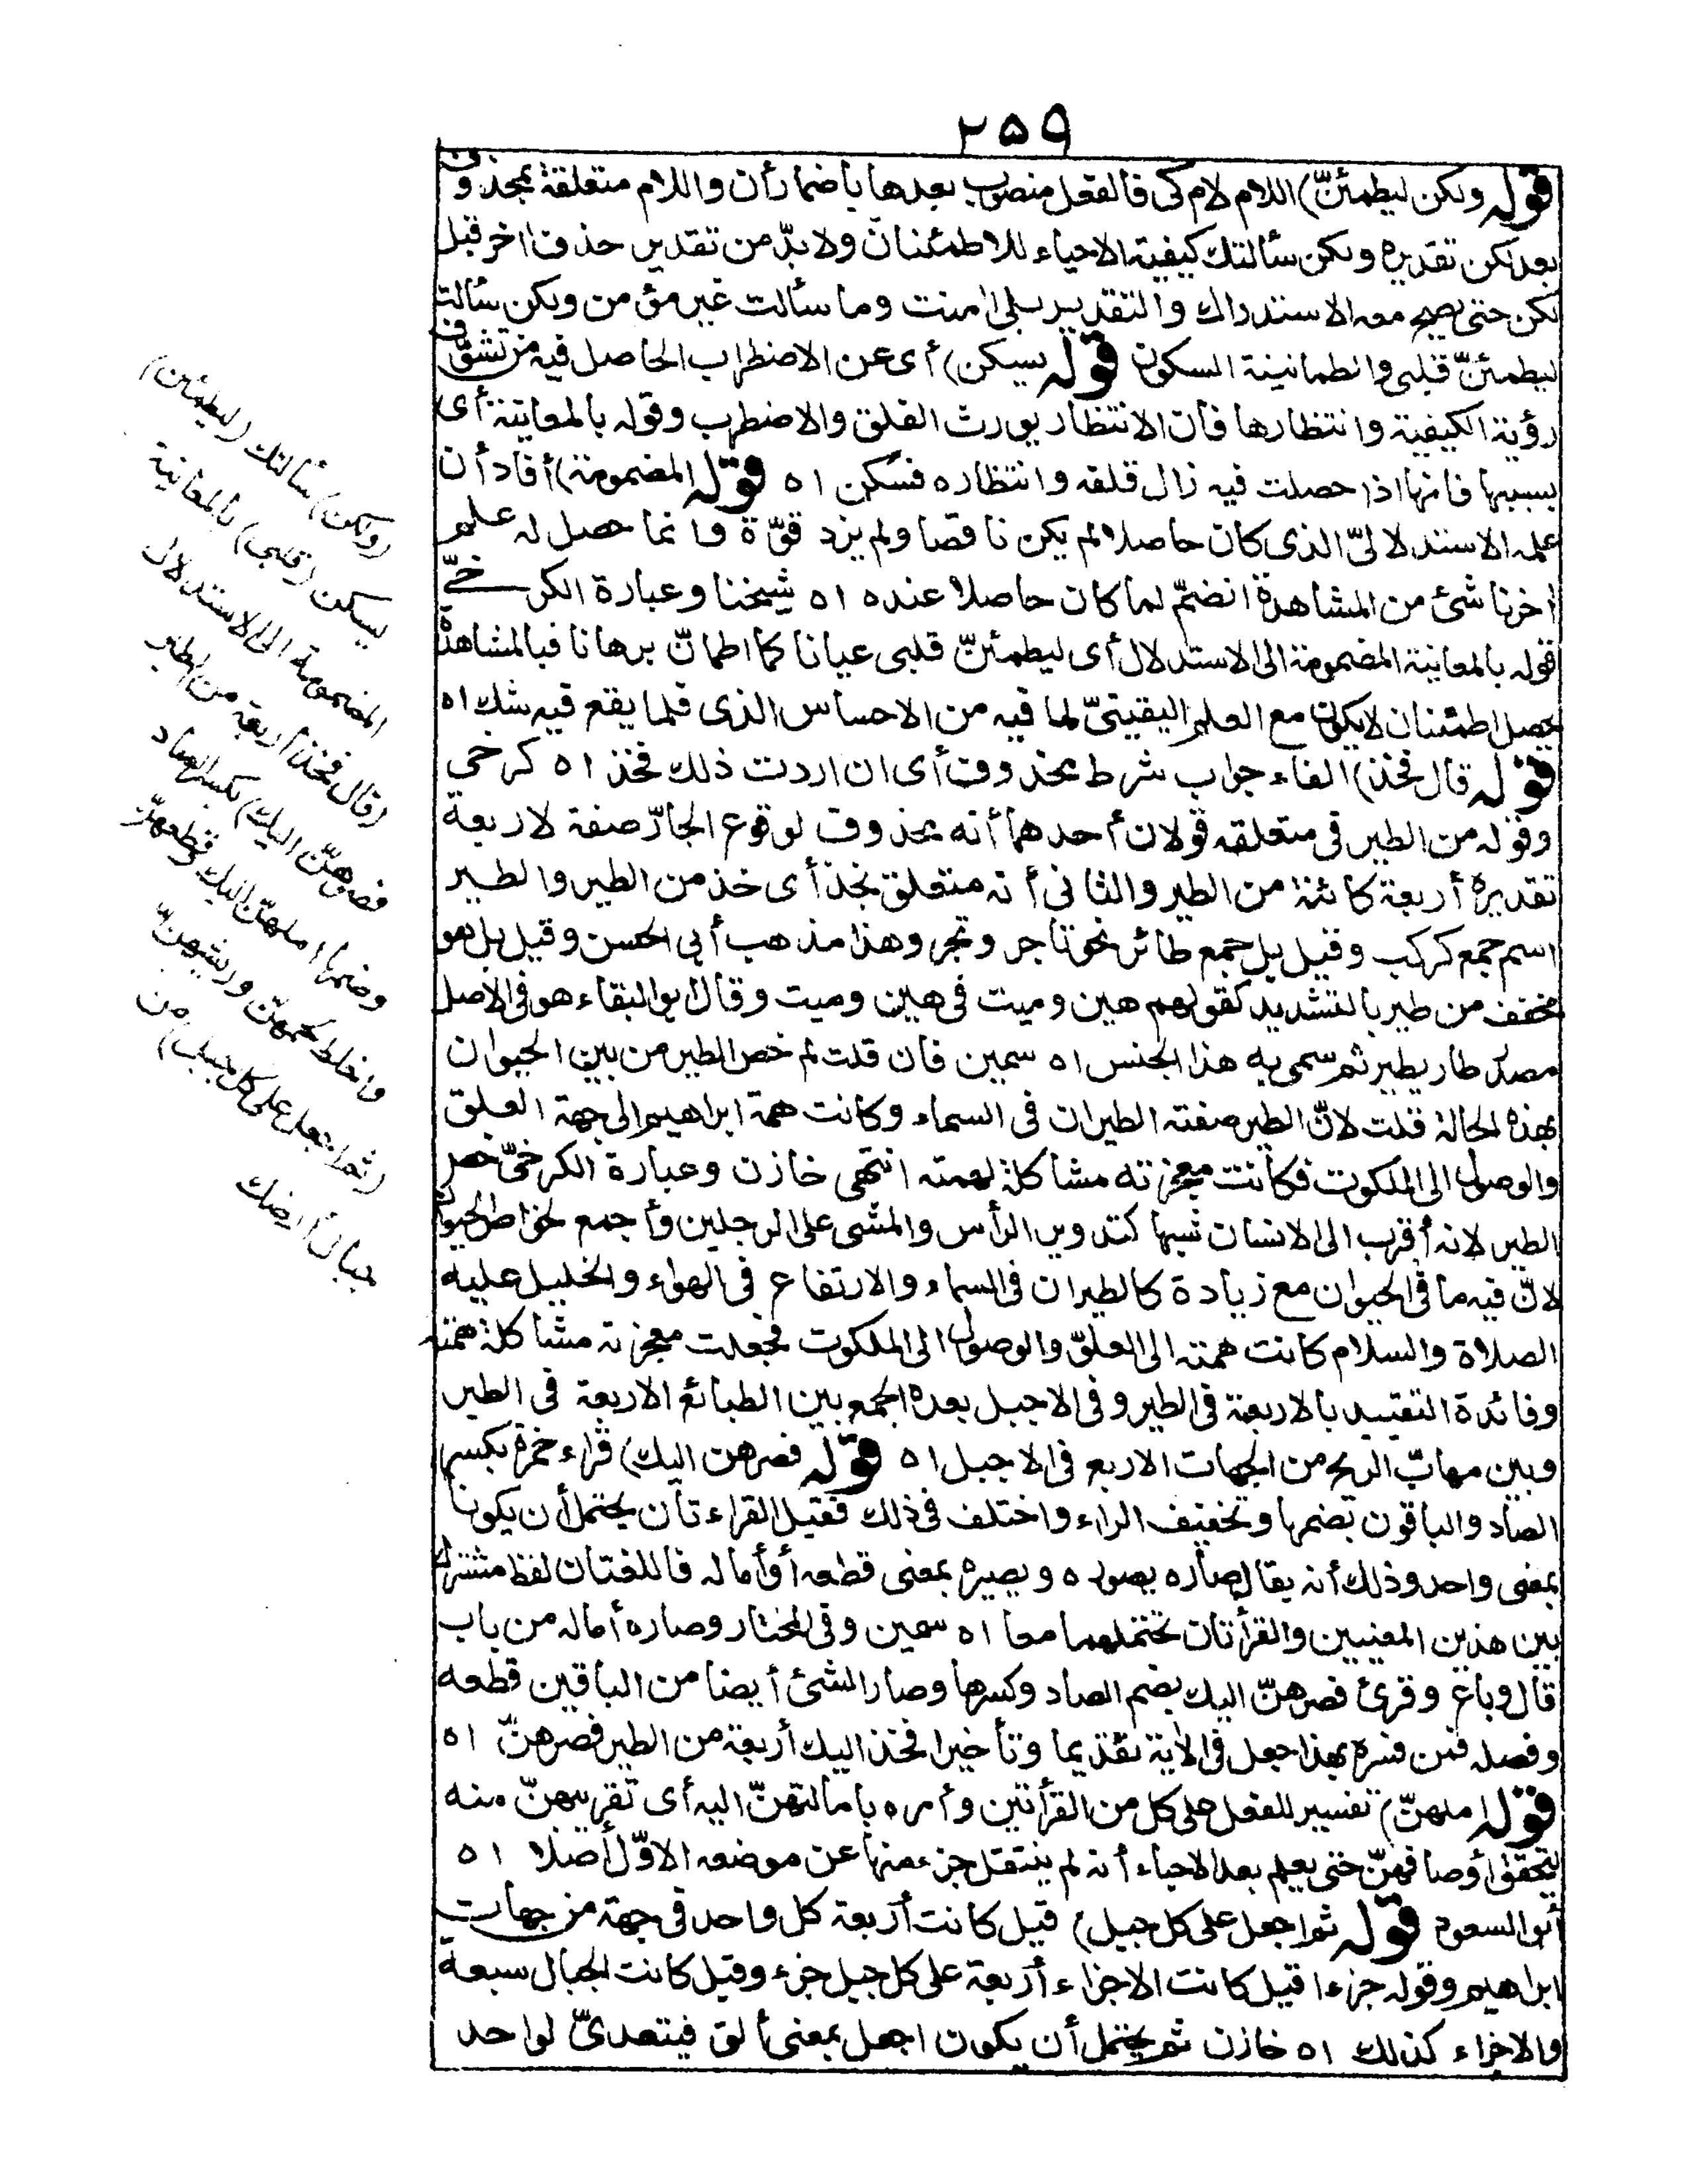 ٢٥٩
قوله ولكن ليطمئنّ) اللام لام كى فالفعل منصوب بعدها باضمار أن واللام متعلقة بمحذوف
بعد لكن تقديره ولكن سألتك كيفية الاحياء للاطمئنان ولا بدّ من تقدير حذف اخر قبل
لكن حتى يصح معه الاستدراك والتقدير بلى امنت وما سألت غير مؤمن ولكن سألت
ليطمئنّ قلبى والطمانينة السكون قوله يسكن) أى عن الاضطراب الحاصل فيه من تشوّف
رؤية الكيفية وانتظارها فان الانتظار يورث القلق والاضطرب وقوله بالمعاينة أى
بسببها فانها اذا حصلت فيه زال قلقه وانتظاره فسكن اه قوله المضمومة) أفاد أن
علمه الاستدلالىّ الذى كان حاصلا لم يكن ناقصا ولم يزد قوّة وانما حصل له علم
اخر ناشئ من المشاهدة انضمّ لما كان حاصلا عنده اه شيخنا وعبارة الكرخىّ
قوله بالمعاينة المضمومة الى الاستدلال أى ليطمئنّ قلبى عيانا كما اطمانّ برهانا فبالمشاهدة
يحصل اطمئنان لا يكون مع العلم اليقينىّ لما فيه من الاحساس الذى قلما يقع فيه شك اه
قوله قال فخذ) الفاء جواب شرط محذوف أى ان اردت ذلك فخذ اه كرخى
وقوله من الطير فى متعلقه قولان أحدهما أنه محذوف لوقوع الجارّ صفة لاربعة
تقديره أربعة كائنة من الطير والثانى أنه متعلق بخذ أى خذ من الطير والطير
اسم جمع كركب وقيل بل جمع طائر نحو تاجر وتجر وهذا مذهب أبى الحسن وقيل بل هو
مخفف من طير بالتشديد كقولهم هين وميت فى هين وميت وقال ابو البقاء هو فى الأصل
مصدر طار يطير ثم سمى به هذا الجنس اه سمين فان قلت لم خص الطير من بين الحيوان
بهذه الحالة قلت لانّ الطير صفته الطيران فى السماء وكانت همة ابراهيم الى جهة العلو
والوصول الى الملكوت فكانت معجزته مشاكلة لهمته انتهى خازن وعبارة الكرخىّ خص
الطير لانه أقرب الى الانسان شبها كتدوير الرأس والمشى على الرجلين وأجمع لخواص الحيوان
لانّ فيه ما فى الحيوان مع زيادة كالطيران فى السماء والارتفاع فى الهواء والخليل عليه
الصلاة والسلام كانت همته الى العلوّ والوصول الى الملكوت فجعلت معجزته مشاكلة همته
وفائدة التقييد بالاربعة فى الطير وفى الاجبل بعده الجمع بين الطبائع الاربعة فى الطير
وبين مهابّ الريح من الجهات الاربع فى الاجبل اه قوله فصرهن اليك) قراء حمزة بكسر
الصاد والباقون بضمها وتخفيف الراء واختلف فى ذلك فقيل القراءتان يحتمل أن يكونا
بمعنى واحد وذلك أنه يقال صاره يصوره ويصيره بمعنى قطعه أو أماله فاللغتان لفظ مشترك
بين هذين المعنيين والقرأتان تحتملهما معا اه سمين وفى المختار وصاره أماله من باب
قال وباع وقرئ فصرهنّ اليك بضم الصاد وكسرها وصار الشئ أيضا من الباقين قطعه
وفصله فمن فسره بهذا جعل فى الاية تقديما وتأخيرا فخذ اليك أربعة من الطير فصرهنّ اه
قوله املهنّ) تفسير للفعل على كل من القرأتين وأمره بامالتهنّ اليه أى تقريبهنّ منه
ليتحقق أوصافهنّ حتى يعلم بعد الاحياء أنه لم ينتقل جزء منها عن موضعه الاوّل أصلا اه
أبو السعود قوله ثم اجعل على كل جبل) قيل كانت أربعة كل واحد فى جهة من جهات
ابراهيم وقوله جزءا قيل كانت الاجزاء أربعة على كل جبل جزء وقيل كانت الجبال سبعة
والاجزاء كذلك اه خازن ثم يحتمل أن يكون اجعل بمعنى ألق فيتعدىّ لواحد
(ولكن) سألتك (ليطمئن)
يسكن (قلبى) بالمعاينة
المضمومة الى الاستدلال
(قال فخذ أربعة من الطير
فصرهنّ اليك) بكسر الصاد
وضمها املهنّ اليك وقطعهنّ
واخلط لحمهنّ وريشهنّ
(ثم اجعل على كل جبل) من
جبال أرضك